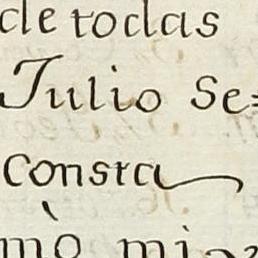 de todas
Julio Se=
consta
mò mi